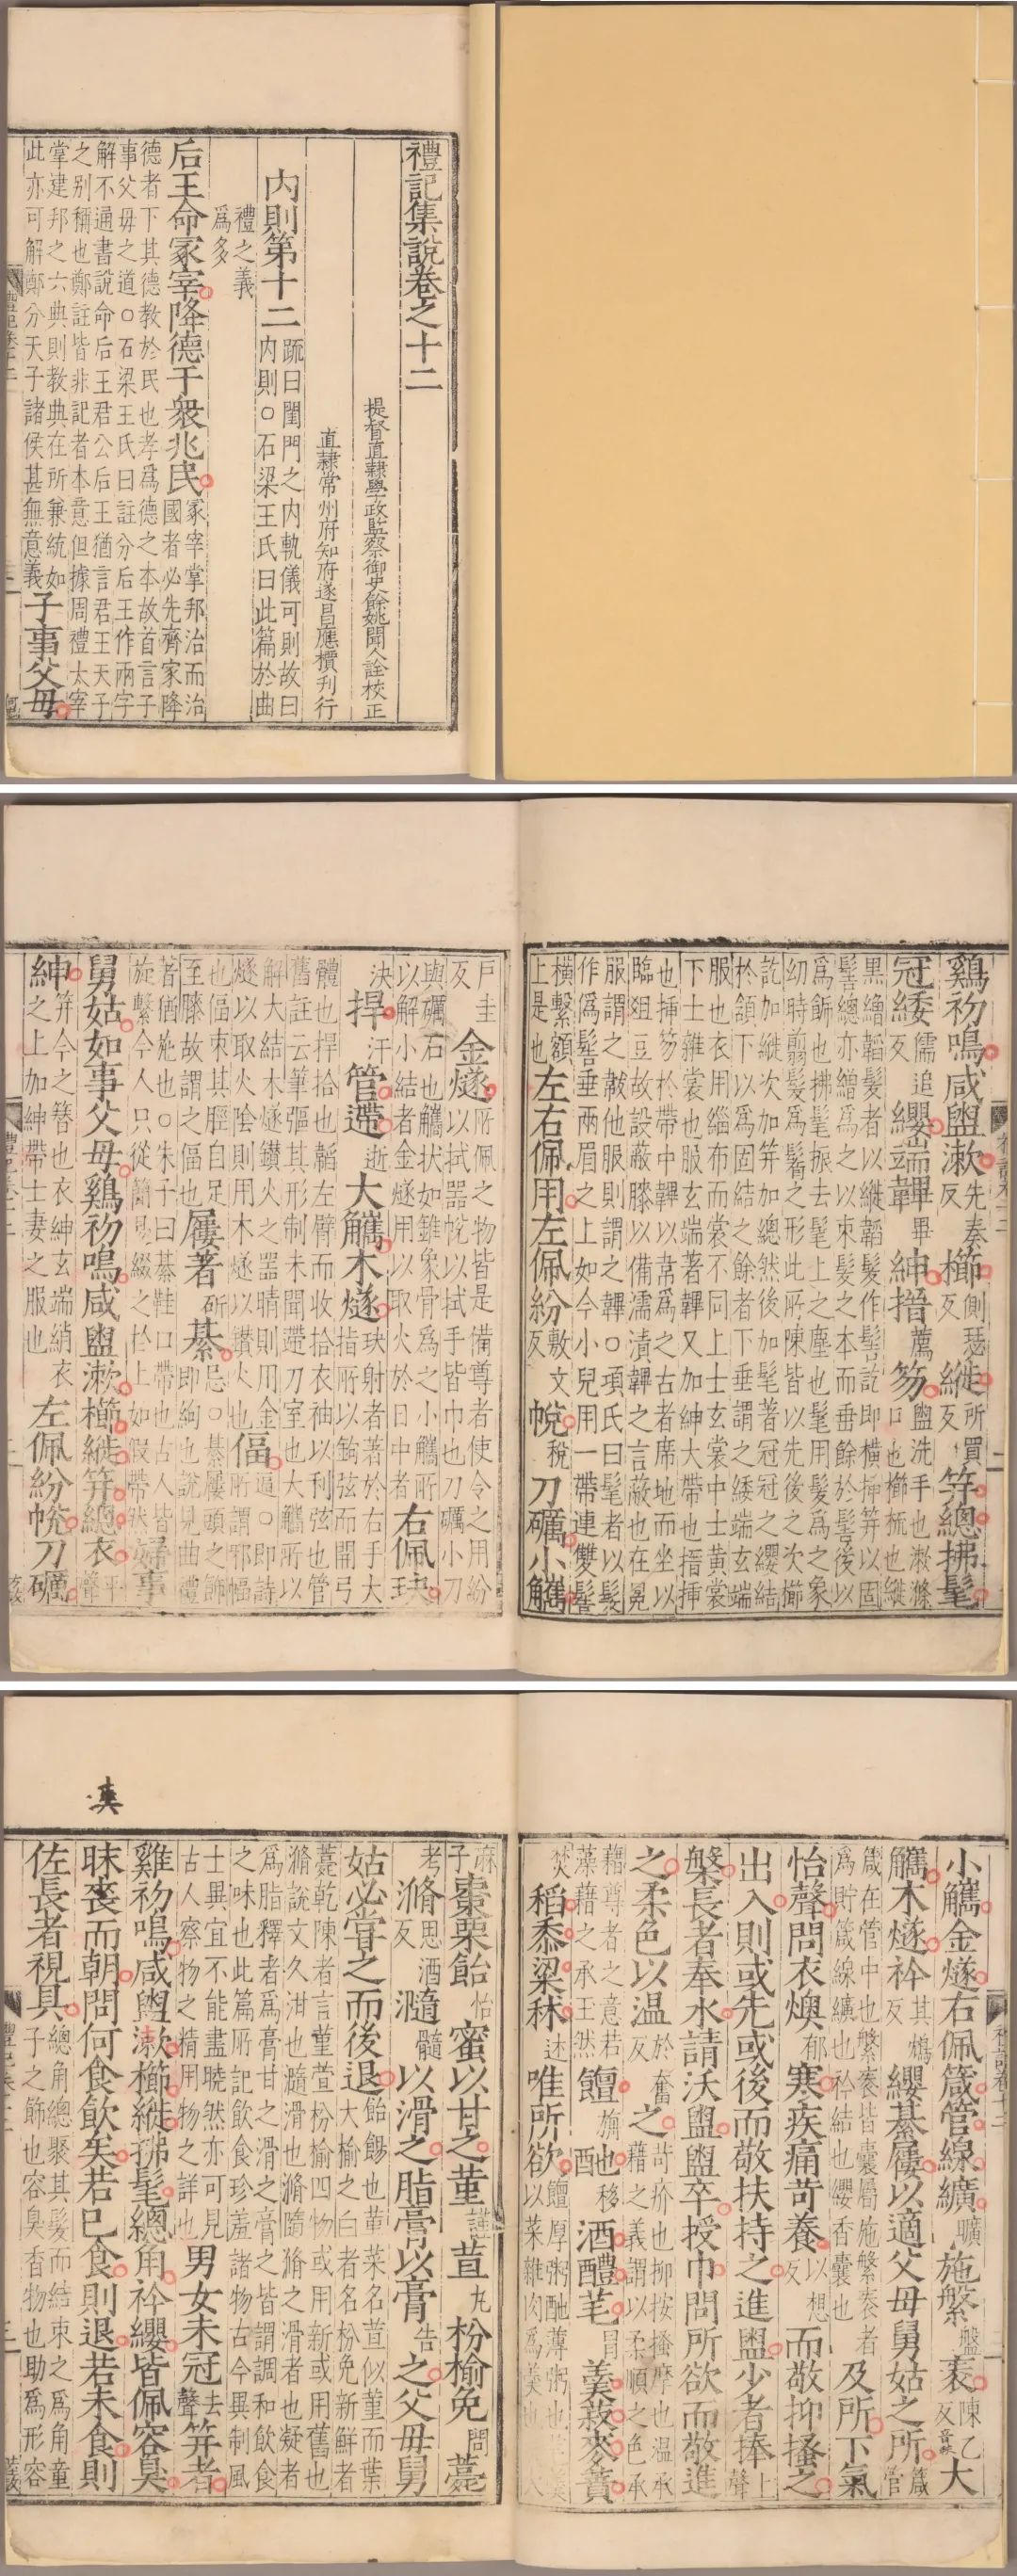 禮記集說卷之十二
提督直隸學政監察御史餘姚聞人詮校正
直隸常州府知府遂昌應檟刊行
内則第十二疏曰閨門之内軌儀可則故曰内則○石梁王氏曰此篇於曲
禮之義爲多
后王命冢宰降德于衆兆民冢宰掌邦治而治國者必先齊家降
德者下其德教於民也孝爲德之本故首言子事父母之道○石梁王氏曰註分后王作兩字
解不通書說命后王君公后王猶言君王天子之别稱也鄭註皆非記者本意但據周禮太宰
掌建邦之六典則教典在所兼統如此亦可解鄭分天子諸侯甚無意義子事父母
鷄初鳴咸盥漱先奏反櫛側瑟反縰所買反笄總拂髦
冠緌儒追反纓端韠畢紳搢薦笏盥洗手也漱滌口也櫛梳也縰
黑繒韜髮者以縰韜髮作髻訖即橫揷笄以固髻總亦繒爲之以束髮之本而垂餘於髻後以
爲飾也拂髦振去髦上之塵也髦用髮爲之象幼時翦髮爲鬌之形此所陳皆以先後之次櫛
訖加縰次加笄加總然後加髦著冠冠之纓結於頷下以爲固結之餘者下垂謂之緌端玄端
服也衣用緇布而裳不同上士玄裳中士黃裳下士雜裳也服玄端著韠又加紳大帶也搢揷
也揷笏於帶中韠以韋爲之古者席地而坐以臨俎豆故設蔽膝以備濡漬韠之言蔽也在冕
服謂之黻他服則謂之韠○項氏曰髦者以髮作僞髻垂兩眉之上如今小兒用一帶連雙髻
橫繫額上是也左右佩用左佩紛敷文反帨稅刀礪小觿
戶圭反金燧所佩之物皆是備尊者使令之用紛以拭器帨以拭手皆巾也刀礪小刀
與礪石也觿狀如錐象骨爲之小觿所以解小結者金燧用以取火於日中者右佩玦
決捍汗管遰逝大觿木燧玦射者著於右手大指所以鉤弦而開弓
體也捍拾也韜左臂而收拾衣袖以利弦也管舊註云筆彄其形制未聞遰刀室也大觿所以
解大結木燧鑽火之器晴則用金燧以取火陰則用木燧以鑽火也偪逼○即詩所謂邪幅
也偪束其脛自足至膝故謂之偪也屨著斫綦忌○綦屨頭之飾即絇也說見曲禮
著猶施也○朱子曰綦鞋口帶也古人皆旋繫今人只從簡易綴之於上如假帶然婦事
舅姑如事父母鷄初鳴咸盥漱櫛縰笄總衣平聲
紳笄今之簪也衣紳玄端綃衣之上加紳帶士妻之服也左佩紛帨刀礪
小觿金燧右佩箴管線纊曠施縏盤袠陳乙反大
觿木燧衿其鴆反纓綦屨以適父母舅姑之所箴管
箴在管中也縏袠皆囊屬施縏袠者爲貯箴線纊也衿結也纓香囊也及所下氣
怡聲問衣燠郁寒疾痛苛養以想反而敬抑搔之
出入則或先或後而敬扶持之進盥少者捧上聲
槃長者奉水請沃盥盥卒授巾問所欲而敬進
之柔色以温於奮反之苛疥也抑按搔摩也温承藉之義謂以柔順之色承
藉尊者之意若藻藉之承玉然饘旃酏移酒醴芼冒羮菽麥蕡
焚稻黍粱秫述唯所欲饘厚粥酏薄粥也
棗栗飴怡蜜以甘之堇謹荁丸枌榆免問薧
考滫思酒反瀡髓以滑之脂膏以膏告之父母舅
姑必嘗之而後退飴餳也堇菜名荁似堇而葉大榆之白者名枌免新鮮者
薧乾陳者言堇荁枌榆四物或用新或用舊也滫說文久泔也瀡滑也滫隨滫之滑者也凝者
爲脂釋者爲膏甘之滑之膏之皆謂調和飲食之味也此篇所記飲食珍羞諸物古今異制風
士異宜不能盡曉然亦可見古人察物之精用物之詳也男女未冠去聲笄者
雞初鳴咸盥漱櫛縰拂髦總角衿纓皆佩容臭
昧爽而朝問何食飲矣若已食則退若未食則
佐長者視具總角總聚其髮而結束之爲角童子之飾也容臭香物也助爲形容